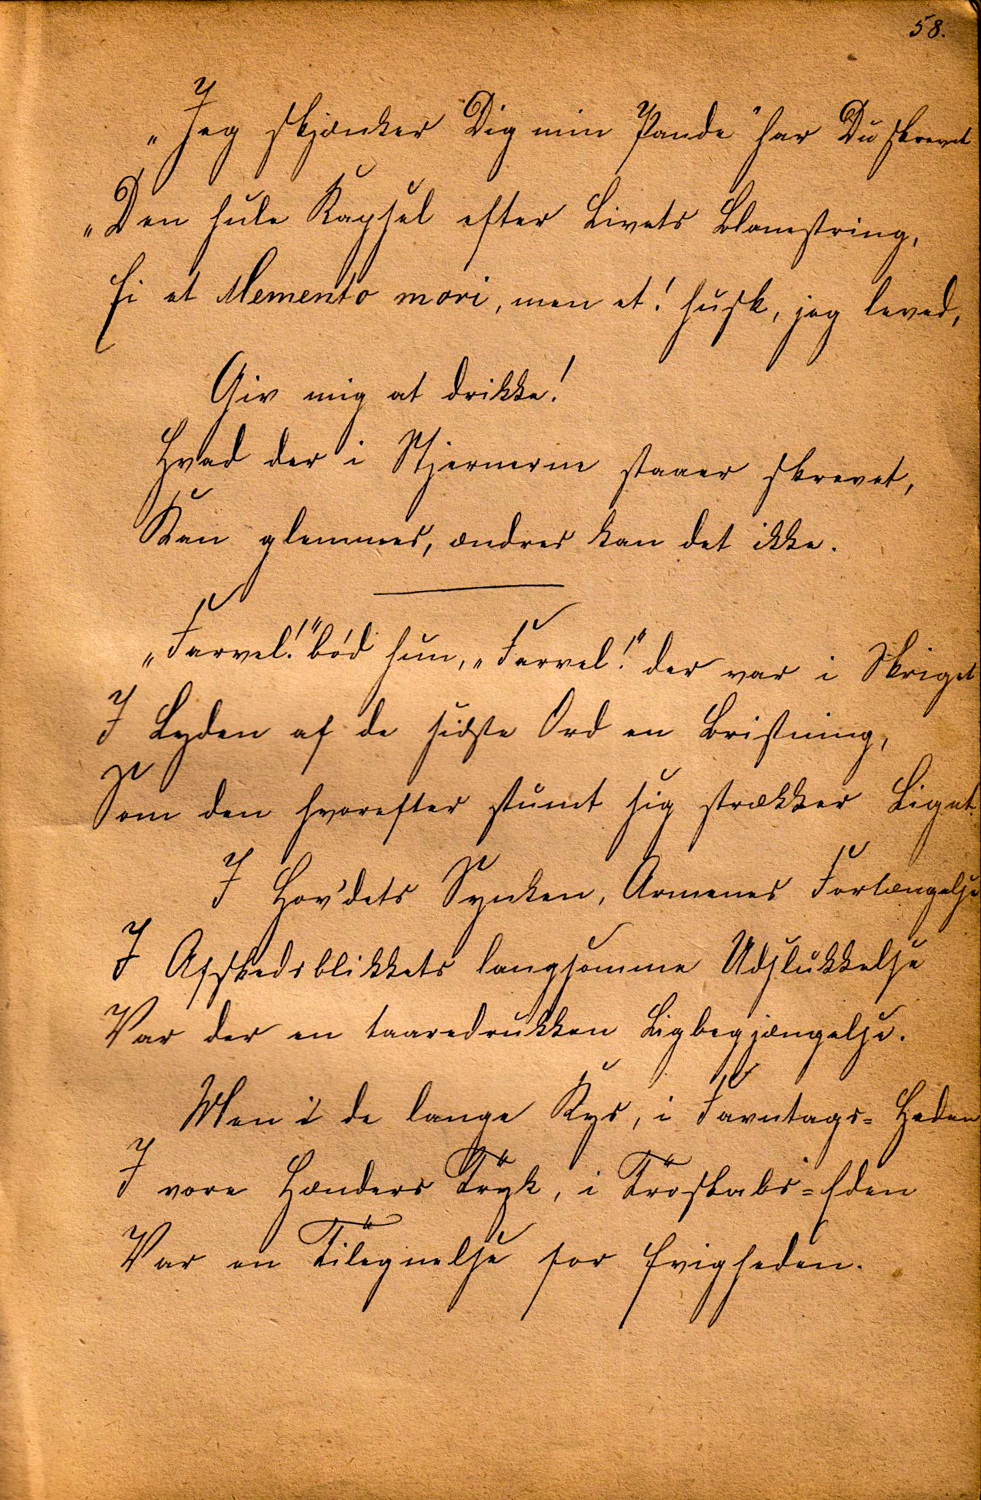 58.
„Jeg skjænker Dig min Pande" har Du skrevet
„Den hule Kapsel efter Livets Blomstring,
Ei et Memento mori, men et! husk, jeg leved,
Giv mig at drikke!
Hvad der i Stjernerne staaer skrevet,
Kan glemmes, ændres kan det ikke.
„Farvel!" bød hun, „Farvel!" der var i Skriget
I Lyden af de sidste Ord en Bristning,
Som den hvorefter stumt sig strækker Liget.
I Hov'dets Synken, Armenes Forlængelse
I Afskedsblikkets langsomme Udslukkelse
Var der en taaredrukken Ligbegjængelse.
Men i de lange Kys, i Favntags-Heden
I vore Hænders Tryk, i Troskabs-Eden
Var en Tilegnelse for Evigheden.